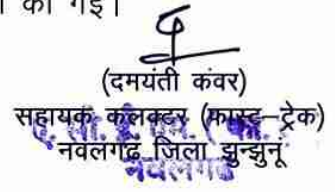 की गई।
(दमयंती कंवर)
सहायक कलक्टर (फास्ट–ट्रेक)
नवलगढ जिला झुन्झुनू
नवलगढ